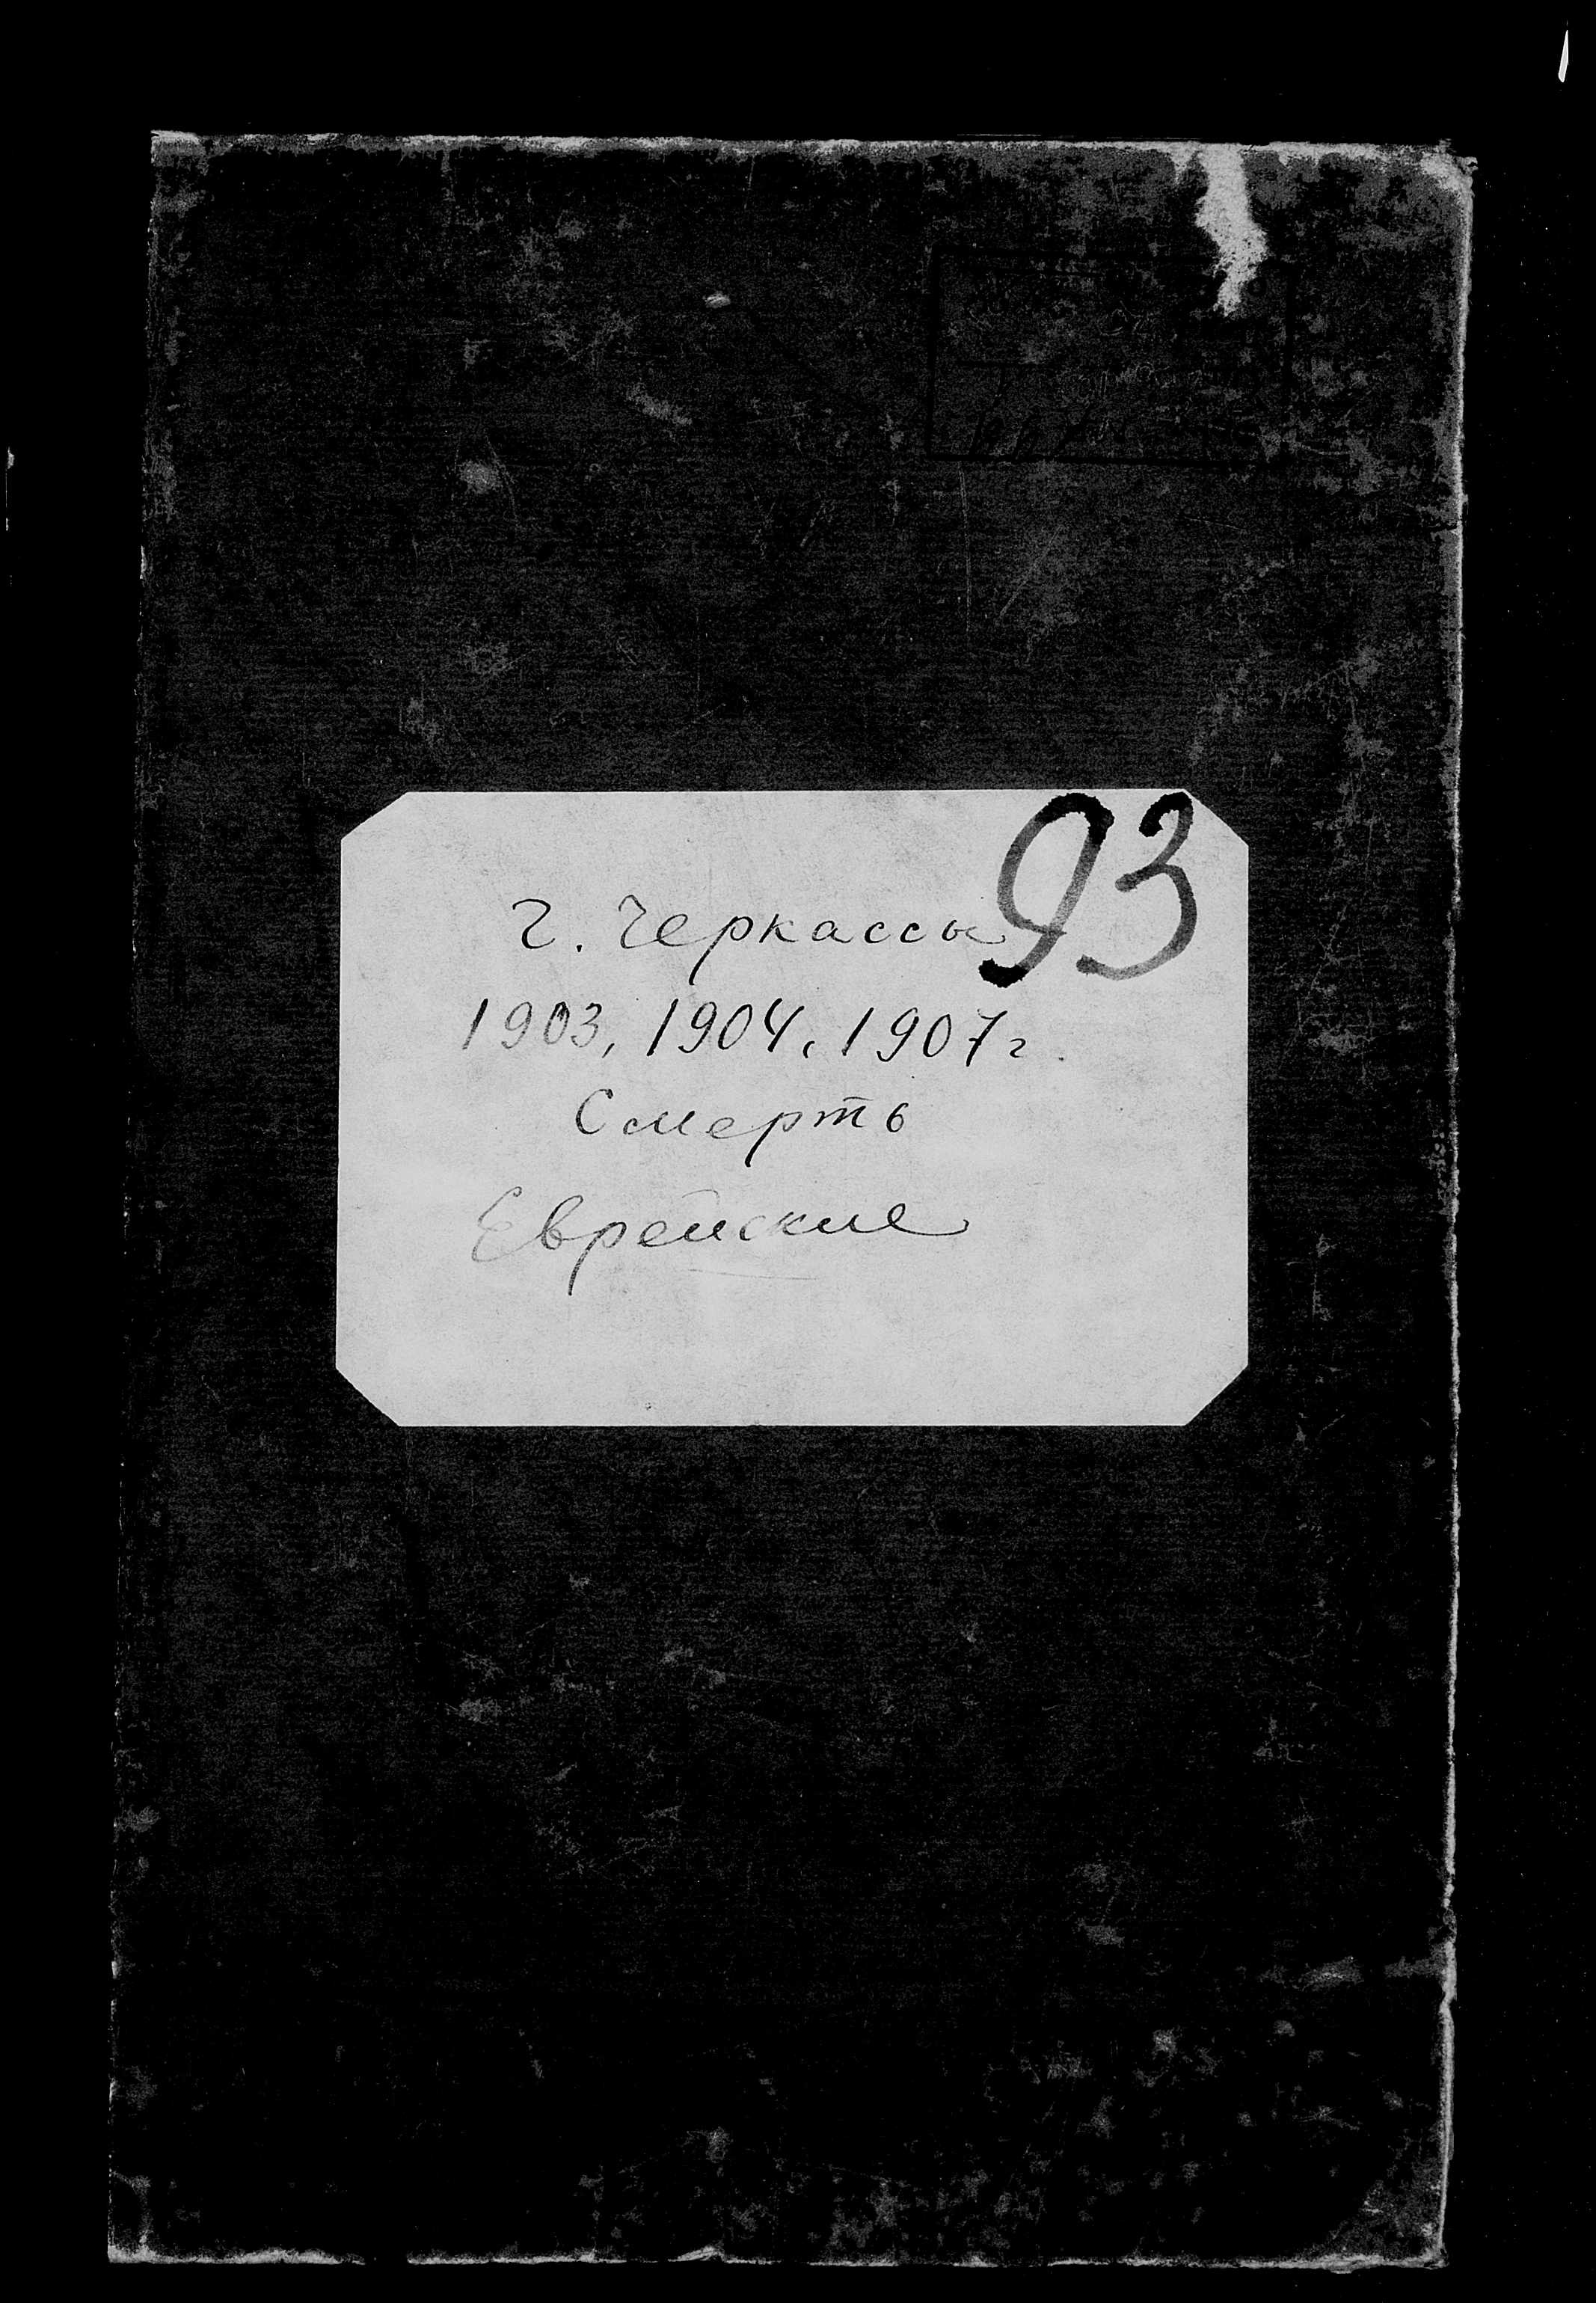 93
г. Черкассы
1903, 1904, 1907 г.
Смерть
Еврейские